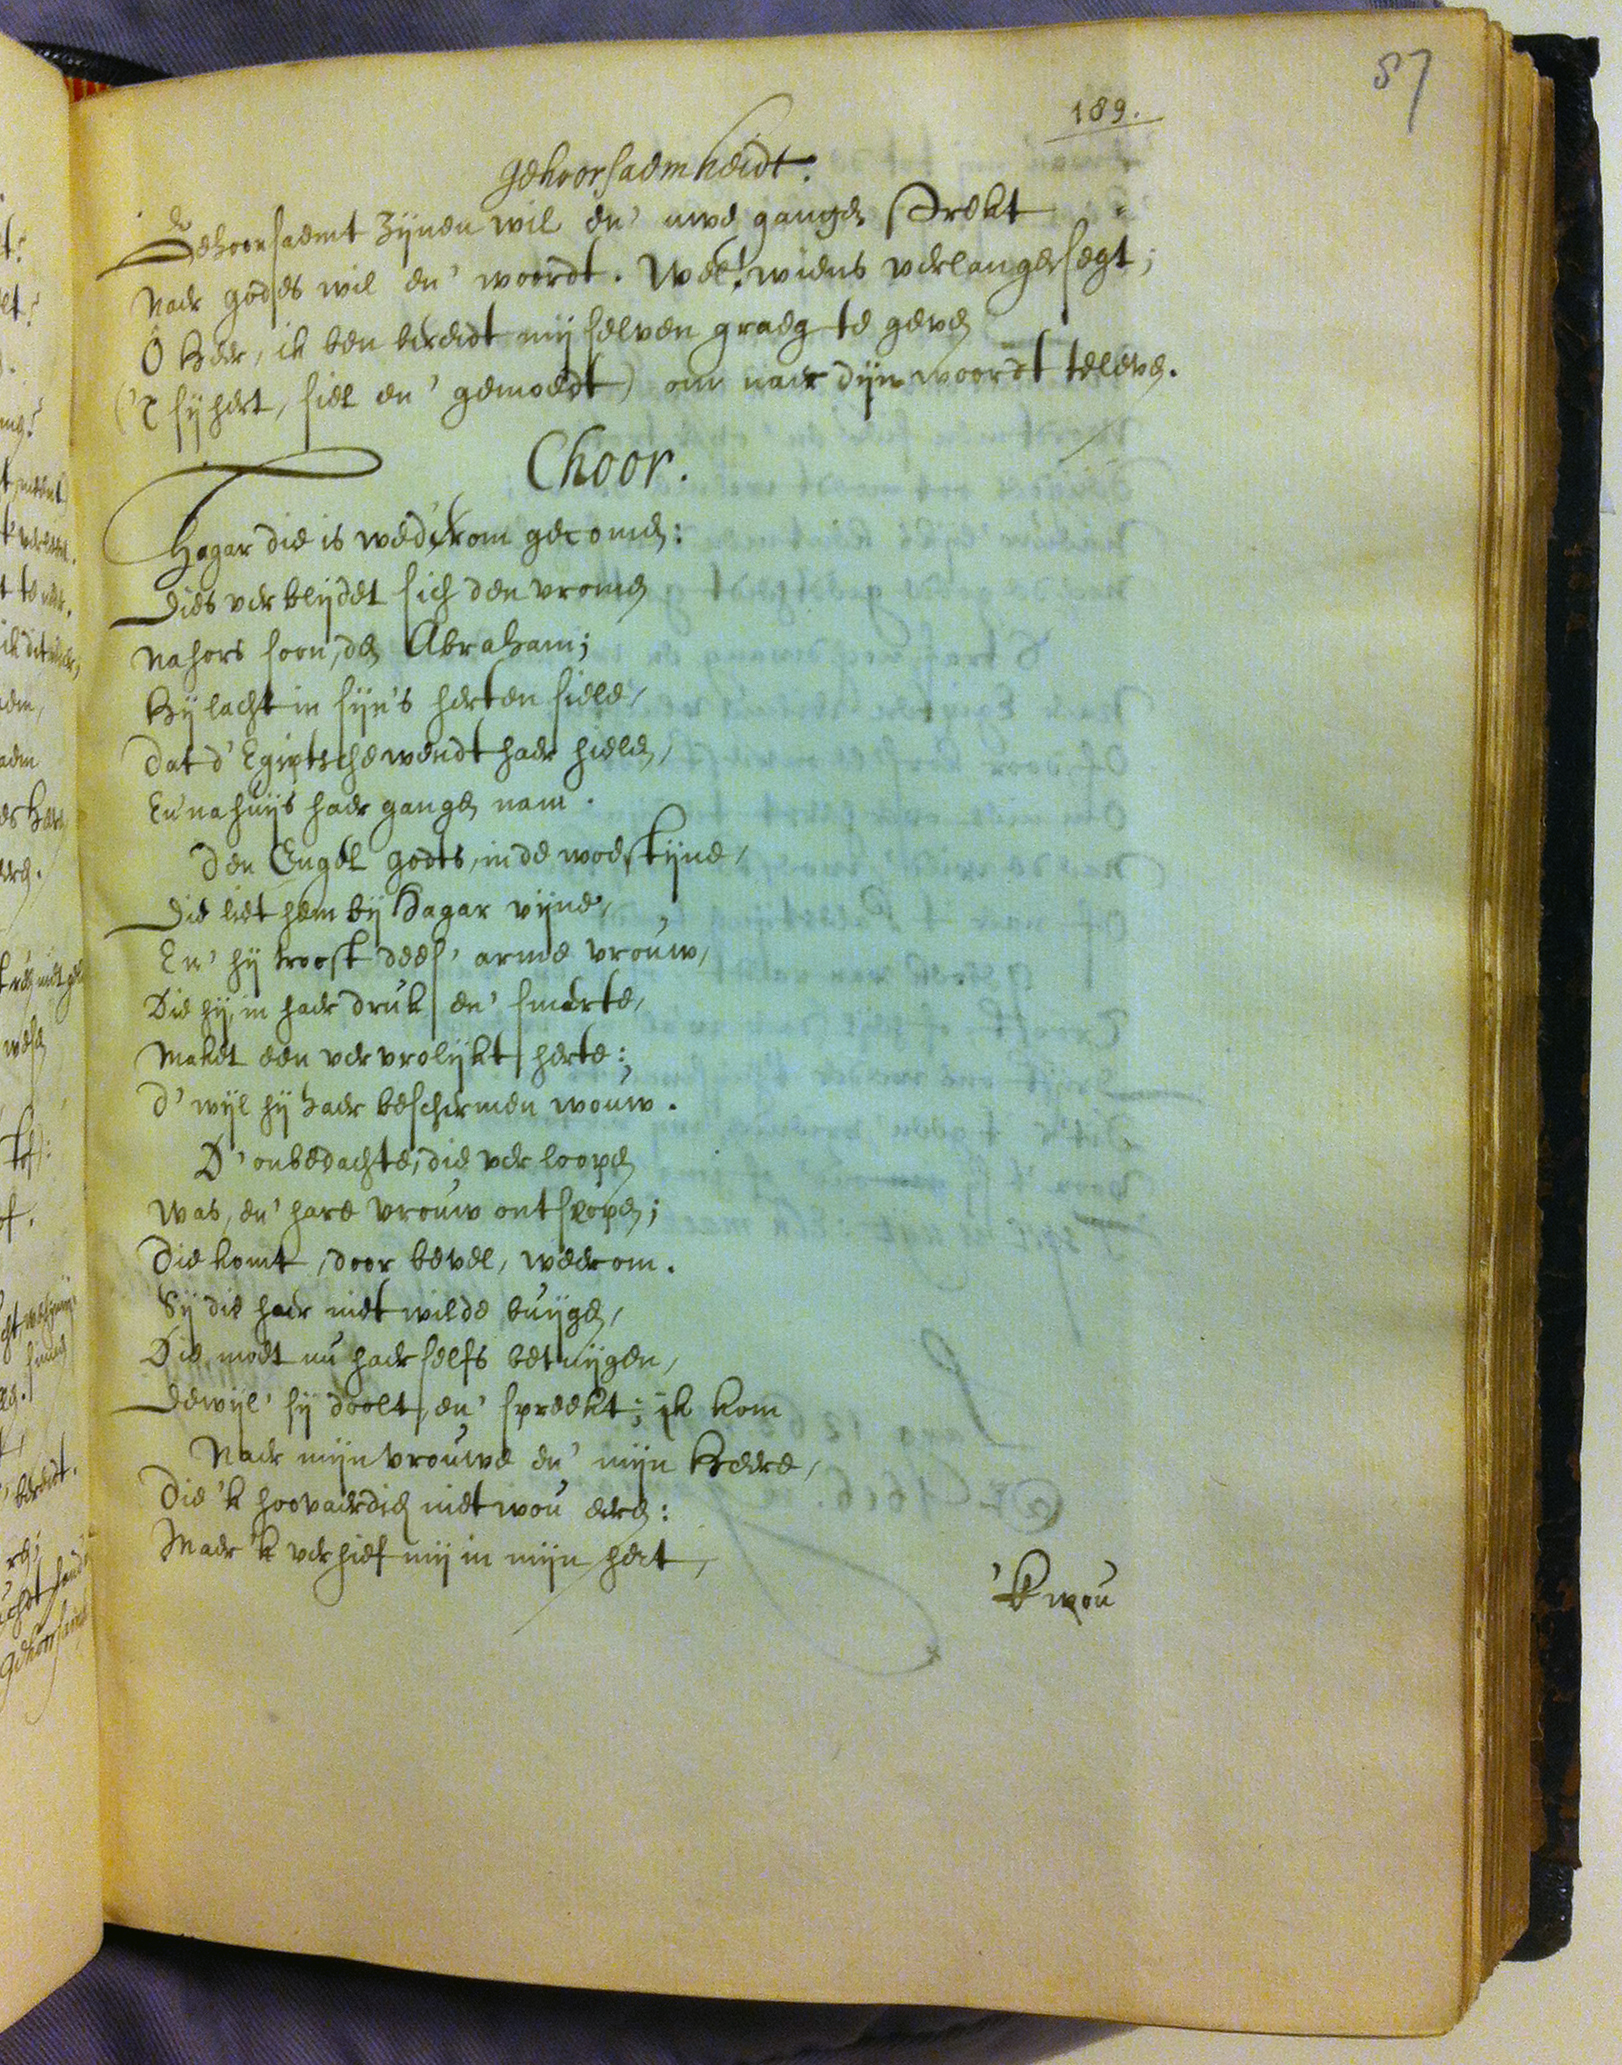 87
189.
gehoorsaemheidt.
Gehoorsaemt Zijnen wil en' uwe gangen strekt
Naer godes wil en' woordt. Wel! wiens verlangen segt;
Ô Heer, ik ben bereidt mij selven graeg te geven
('T sij hert, siel en' gemoedt) om naer dijn woordt te leven.
Choor.
Hagar die is wederom gecomen:
Dies verblijdet sich den vromen
Nahors soon, den Abraham;
Hij lacht in sijn's herten siele,
Dat d' Egiptsche wendt haer hielen,
En' na huijs haer gangen nam.
Den Engel godts, in de woestijne,
Die liet hem bij Hagar vijne,
En' hij troost dees' arme vrouw,
Die hij, in haer druk en' smerte,
Maket een vervrolijkt herte:
D' wijl hij haer beschermen wouw.
D' onbedachte, die verloopen
Was, en' hare vrouw ontslopen;
Die komt, door bevel, weerom.
Sij die haer niet wilde buijgen,
Die moet nu haer selfs betuijgen,
Dewijl' sij doolt, en' spreekt; ik kom
Naer mijn vrouwe en' mijn Heere,
Die 'k hoovaerdich niet wou eeren:
Maer 'k verhief mij in mijn hert,
'k wou